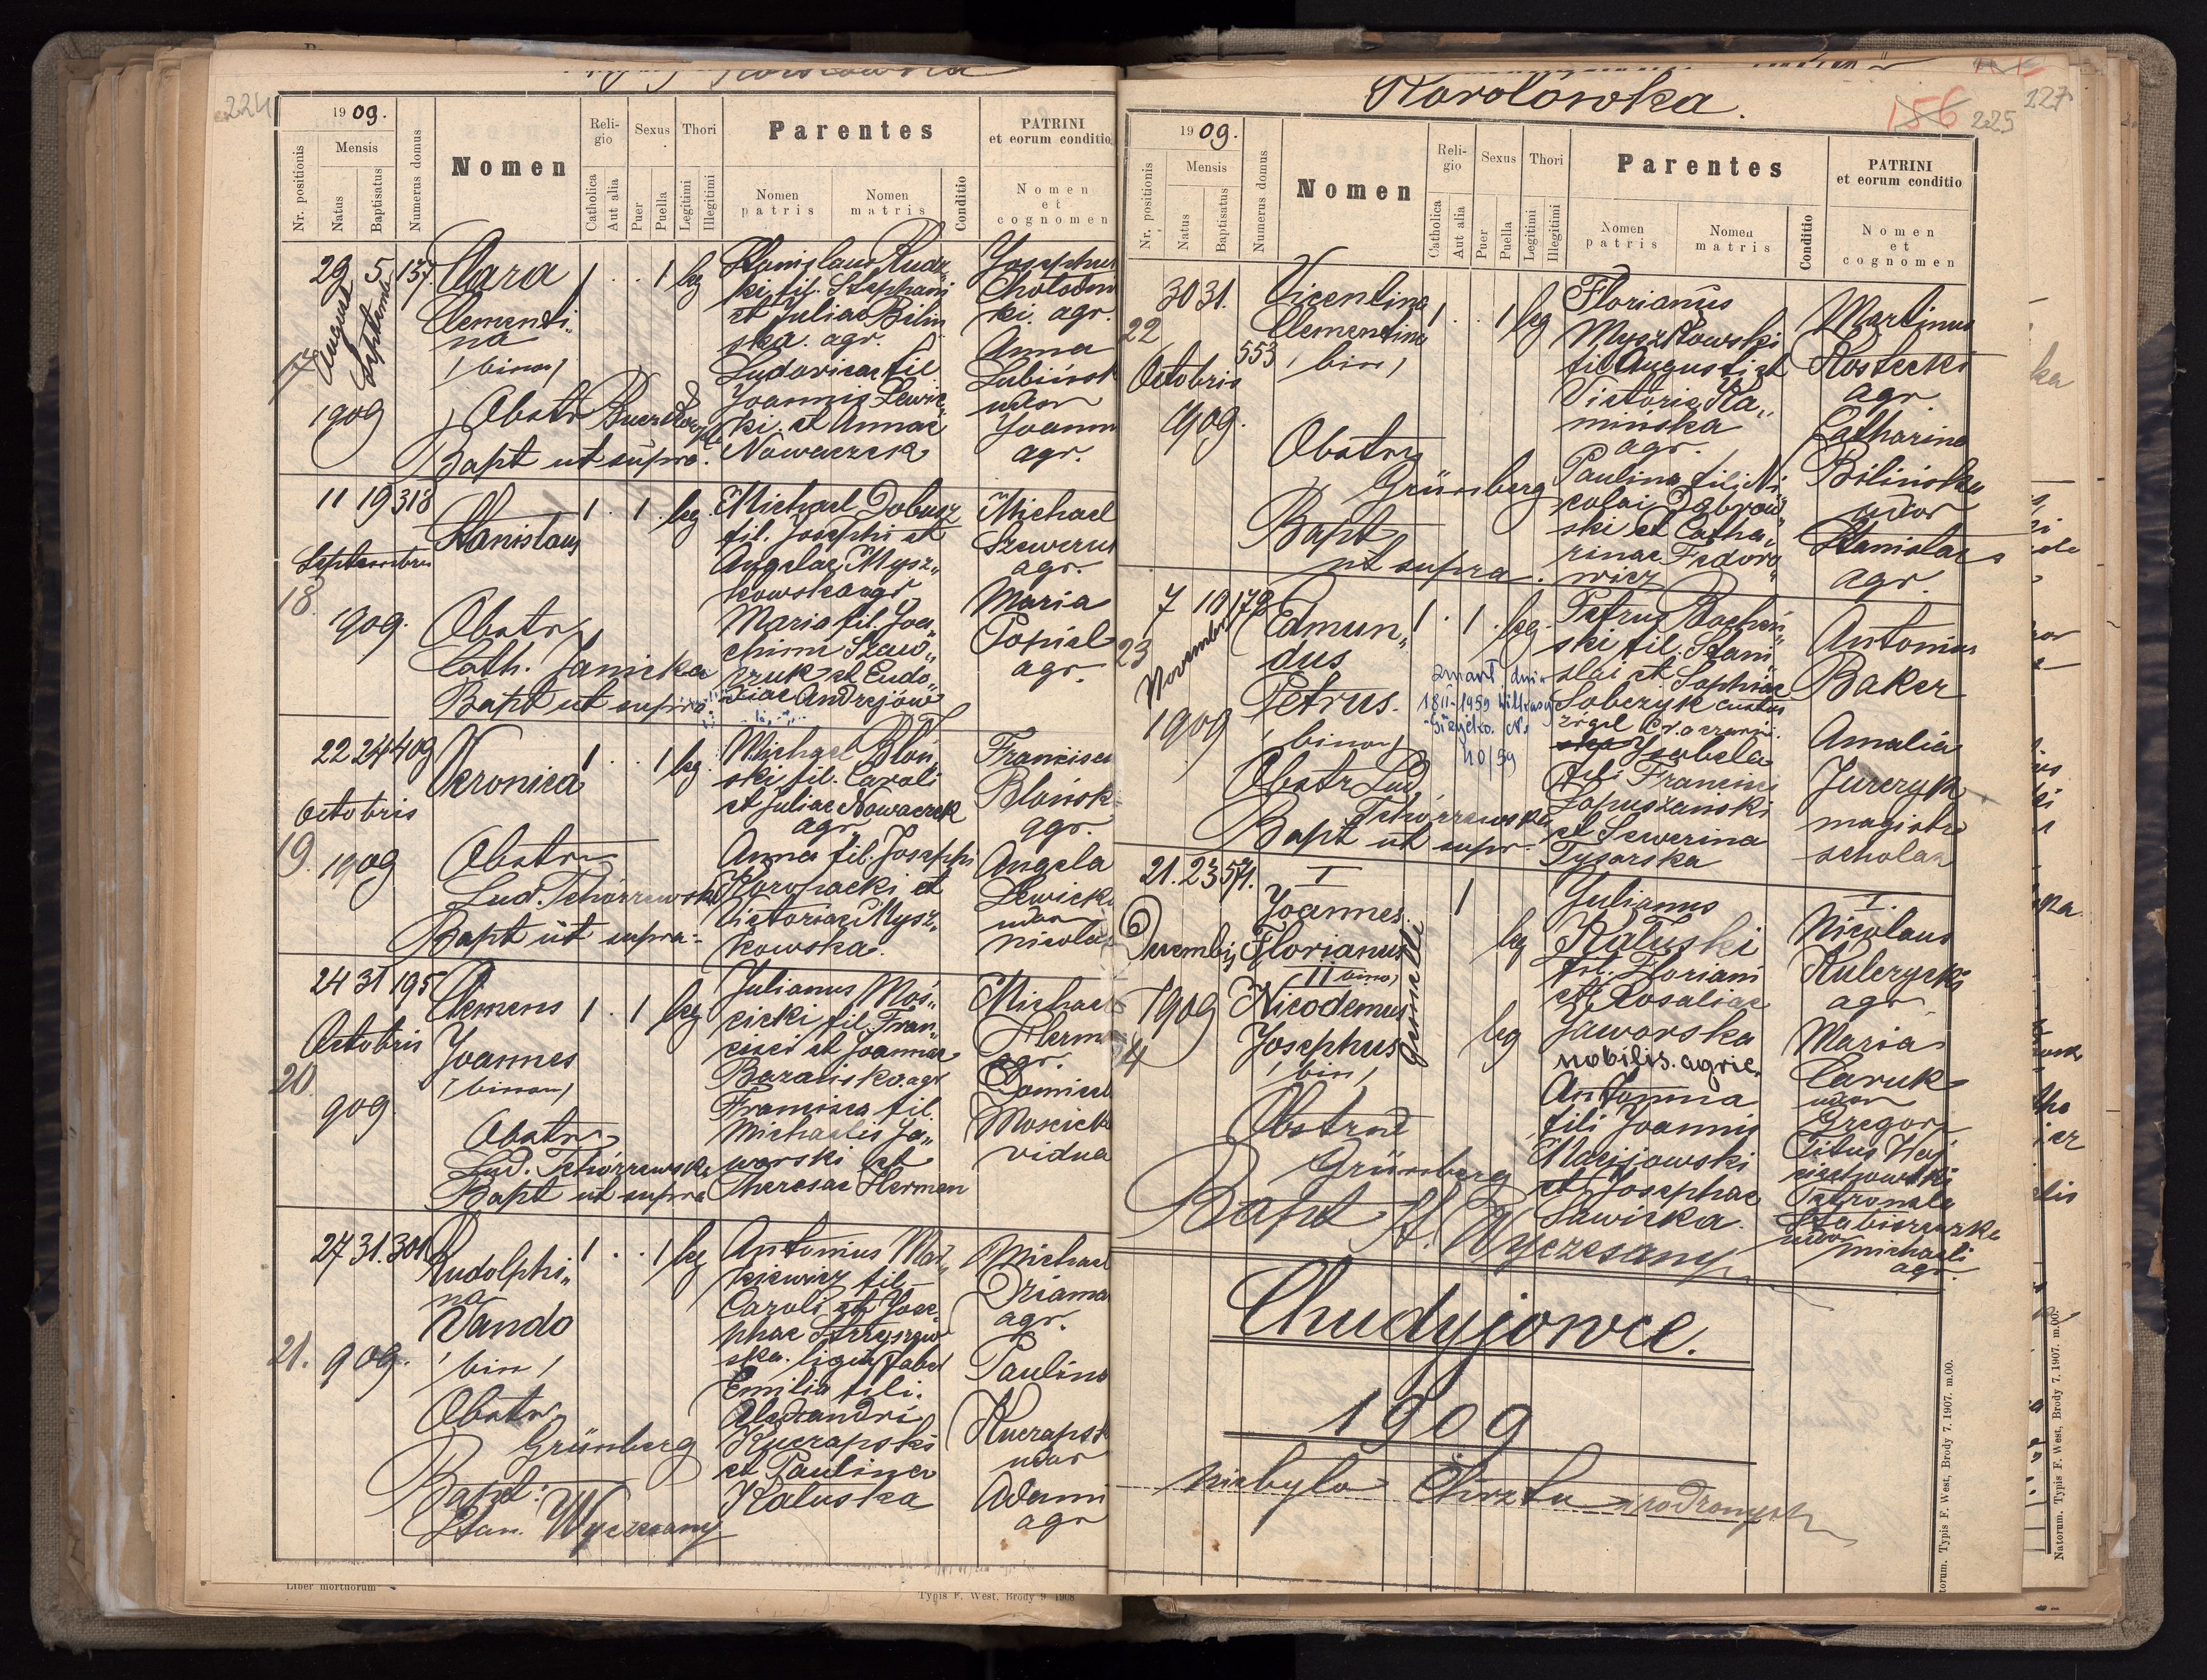 224
1909.
Nr. positionis
Mensis
Natus
Baptisatus
Numerus domus
Nomen
Religio
Catholica
Aut alia
Sexus
Puer
Puella
Thori
Legitimi
Illegitimi
Parentes
Nomen patris
Nomen matris
Conditio
PATRINI
et eorum conditio
Nomen
et
cognomen
29 5 137.
Augusti
Septembr
17
1909
Clara
Clementi„
na
/binom/
Obstr
Bapt ut supra.
1 . . 1 leg
Stanislaus Rudz„
ki fil. Stephani
et Juliae Bilin
ska. agr.
Ludovica fil
Joannis Lewic„
ki. et Annae
Nowaczek
Josephus
ki. agr.
Anna
uxor
Joann
agr.
11 19 318
Septembris
18.
909.
Stanislaus
Obstr
Cath. Janicka
Bapt ut supra.
1 . 1 . leg
Michael Dobusz
fil. Josephi et
Angelae Mysz„
kowska agr
Maria fil. Joa„
chimi Szew„
czuk et Eudo„
xiae Andrejów
Michael
Szewczuk
agr.
Maria
Popiel
agr.
22 24 409
Octobris
19.
1909
Veronica
Obstr
Lud. Tchórzewska
Bapt ut supra.
1 . . 1 leg.
Michael Błoń„
ski fil. Caroli
et Juliae Nowaczek
agr
Anna fil. Josephi
Koropacki et
Victoriae Mysz„
kowska.
Francisc
Błońsk
agr.
Angela
Lewicka
uxor
Nicolai
24 31 195
Octobris
20.
909
Clemens
Joannes
/binom/
Obstr
Lud. Tchórzewska
Bapt ut supra
1 . 1 leg
Julianus Moś„
cicki fil. Fran„
cisci et Joannae
Barańska. agr
Francisca fil.
Michaelis Ja„
worski et
Theresae Herman
Michael
Herm
agr.
Mościck
vidua
27 31. 301
21.
909.
Rudolphi„
na
Vanda
/bin/
Obstr
Grünberg
Bapt:
Stan. Wyczesany
1 . . 1 leg
Antonius Mac„
kiewicz fil
Caroli et Jose„
phae Strzyszew
ska. lign. faber
Emilia fili.
Alexandri
Kuczapski
et Paulina
Kałuska
Michael
Dziama
agr.
Paulina
Kuczapsk
uxor
Adami
agr
Liber mortuorum
Typis F. West, Brody 9 1908
Korolówka.
156
225
227
1909.
Nr. positionis
Mensis
Natus
Baptisatus
Numerus domus
Nomen
Religio
Catholica
Aut alia
Sexus
Puer
Puella
Thori
Legitimi
Illegitimi
Parentes
Nomen patris
Nomen matris
Conditio
PATRINI
et eorum conditio
Nomen
et
cognomen
30 31.
22
553
Octobris
1909.
Vicentina
Clementina
/bin/
Obstr
Grünberg
Bapt
ut supra.
1 . . 1 leg
Florianus
Myszkowski
fil Augusti et
Victoria Ka„
mińska
agr.
Paulina fili Ni
colai Dąbrow„
ski et Catha„
rinae Fedoro„
wicz
Martinus
Kostecki
agr.
Catharina
Bilińska
uxor
Stanislai
agr.
7 11 179
23
Novembr
1909
Edmun„
dus
Petrus.
/binom/
Obstr Lud
Tchórzewska
Bapt ut supr.
1 . 1 . leg.
zmarł dnia
18 II-1959 Wilkasy
Giżycko. Nr
40/59
Petrus Bocheń„
ski fil. Stani„
slai et Sophiae
Sobczyk
Isabela
fili Francisci
Łapuszański
et Sewerina
Tysarska
Antonius
Baker
Amalia
Jurczyk
magistra
scholae
21. 23 571.
Decembris
1909
24
I
Joannes
Florianus
II /bino/
Nicodemus
Josephus
/bin/
Gemelli
Obstr
Grünberg
Bapt St. Wyczesany
1
leg
leg
Julianus
Kałuski
fil. Floriani
et Rosaliae
Jaworska
nobilis. agric.
Antonina
fili Joannis
Macijowski
et Josephae
Sawicka.
I.
Nicolaus
Kulczycki
agr
Maria
Caruk
uxor
Gregor
Titus Woj
ciechowski
Petronela
uxor
Michaeli
agr.
Chudyjowce.
1909
niebyło Chrztu urodzonych
Natorum. Typis F. West, Brody 7. 1907. m.00.